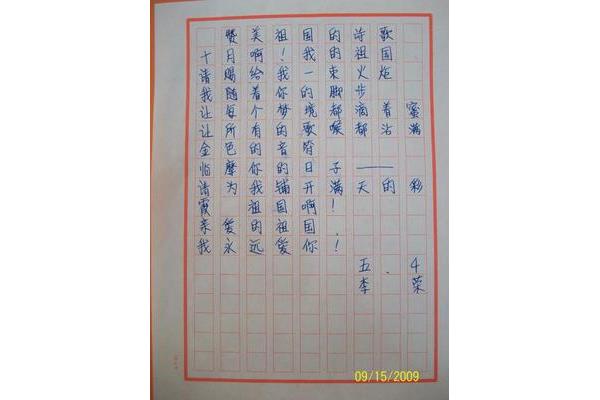 赞美祖国的诗歌
十月啊！我的祖国
请赐给我一束火炬
我随着你的脚步
让每个梦境都滴着蜜
让所有的歌喉都沾满
金色的音符
临摩你的日子——
请为我铺开满天的彩
霞 祖国啊！
亲爱的祖国
我永远爱你！
五.4
李荣
09/15/2009